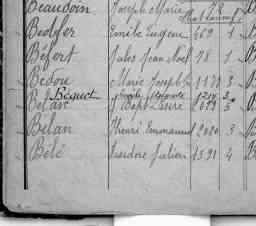 Beaudoin Joseph Marie 78
Bedfer Emile Eugène 669 1
Béfort Jules Jean Noël 78 1
Bedou Marie Joseph 1173 3
Béquet Emile 1214 3
Belair J Bapt 2699 3
Bélan Henri Emmanuel 2020 3
Bélé Isidore Julien 1591 4